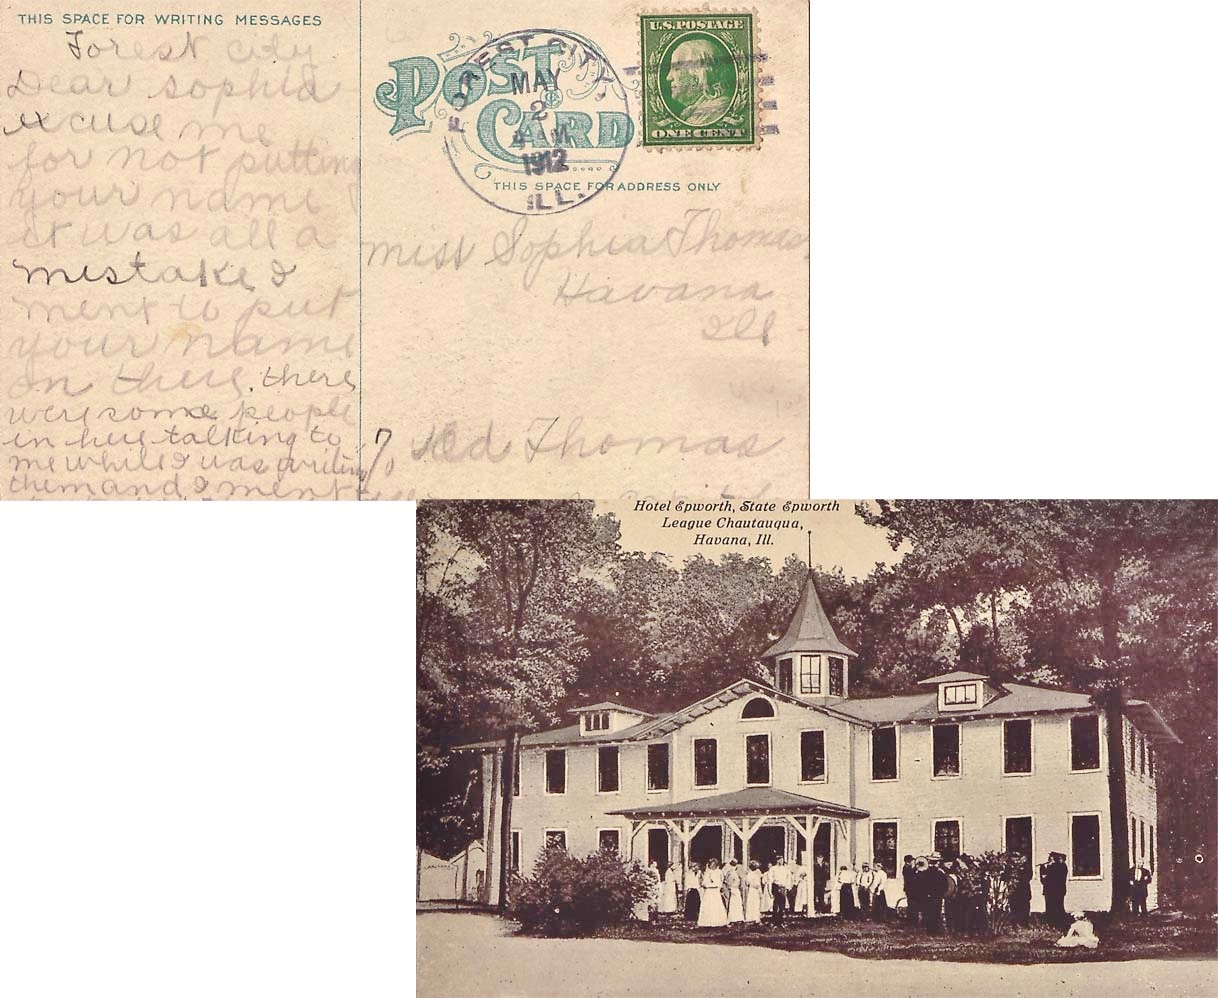 THIS SPACE FOR WRITING MESSAGES
Forest city
Dear Sophia
excuse me
for not putting
your name
it was all a
mistake I
ment to put
your name
on there. there
were some people
in here talking to
me while I was writing
them and I ment
POST CARD
FOREST CITY,
MAY
2
4-AM
1912
ILL.
U.S. POSTAGE
ONE CENT
THIS SPACE FOR ADDRESS ONLY
Miss Sophia Thomas,
Havana
Ill
Ed Thomas
Hotel Epworth, State Epworth
League Chautauqua,
Havana, Ill.